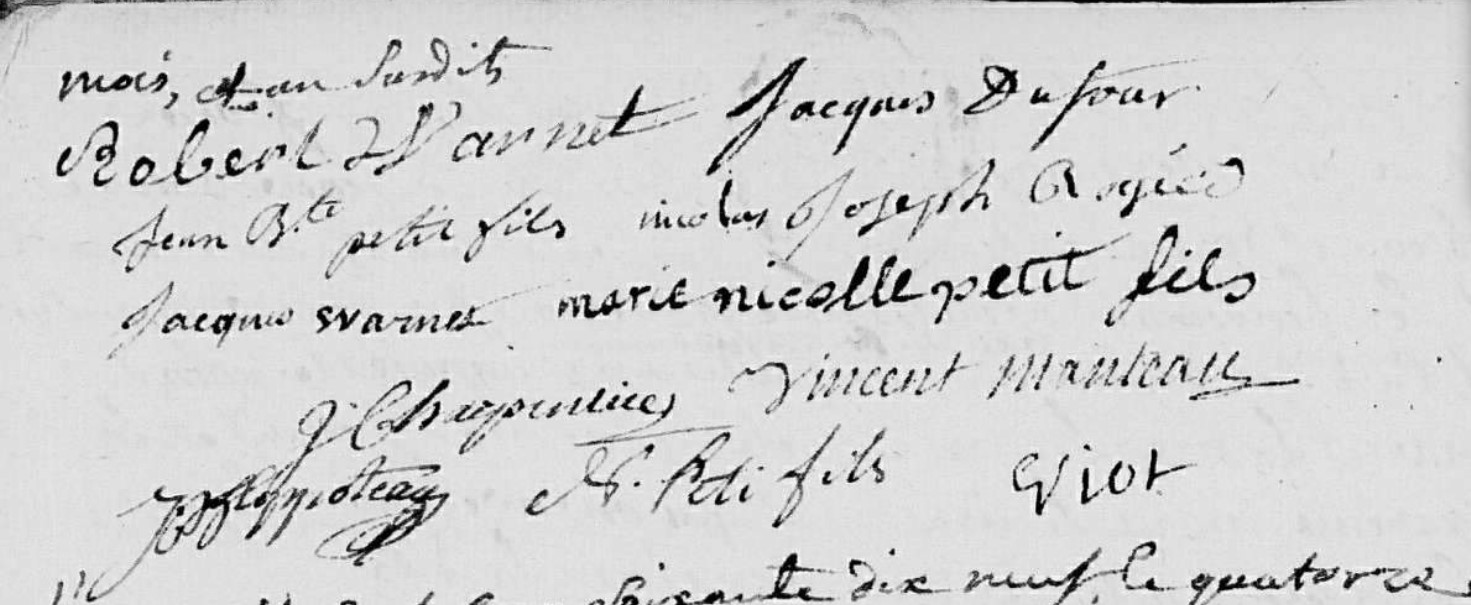 mois, et an susdits
Robert Warnet Jacques Dufour
Jean B.te petit fils nicolas Joseph Rogied
Jacques svarnet marie nicolle petit fils
J Charpentier Vincent Manteau
N. Peti fils Viot
soixante dix neuf, le quatorze